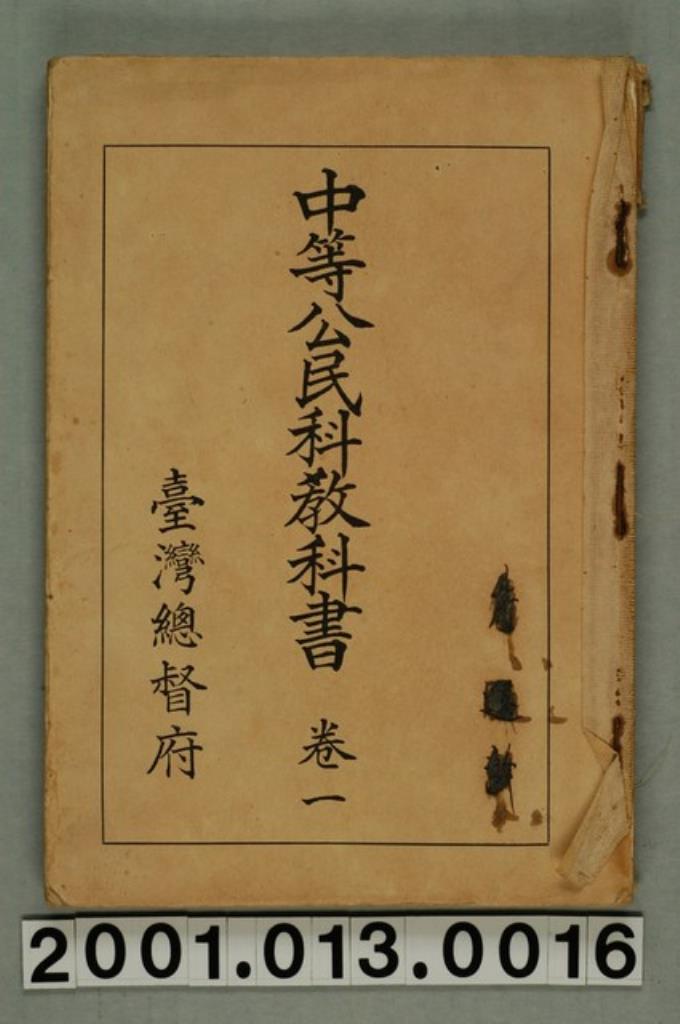 中等公民科教科書 卷一
臺灣總督府
2001.013.0016